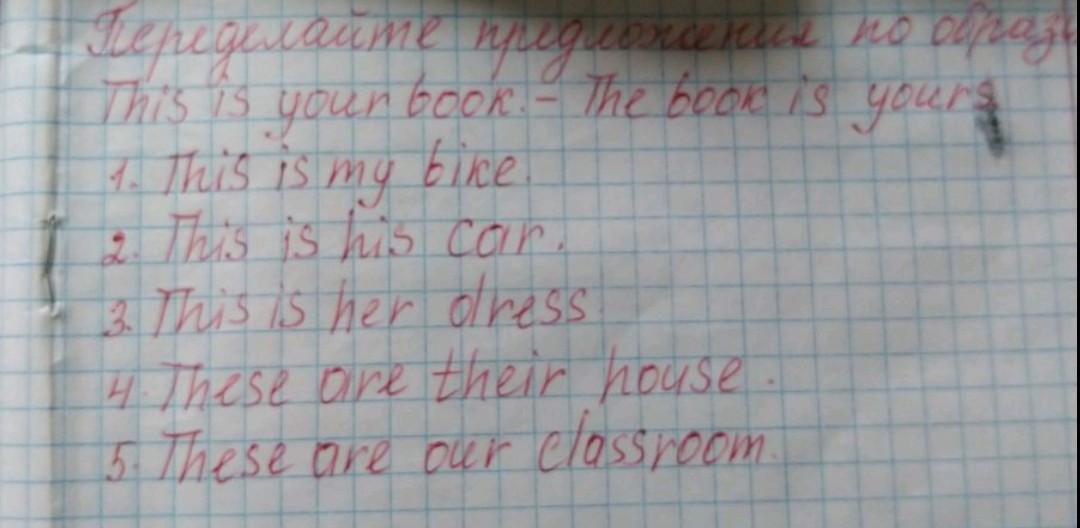 Переделайте предложения по образц
This is your book. - The book is yours
1. This is my bike.
2. This is his car.
3. This is her dress
4. These are their house.
5. These are our classroom.